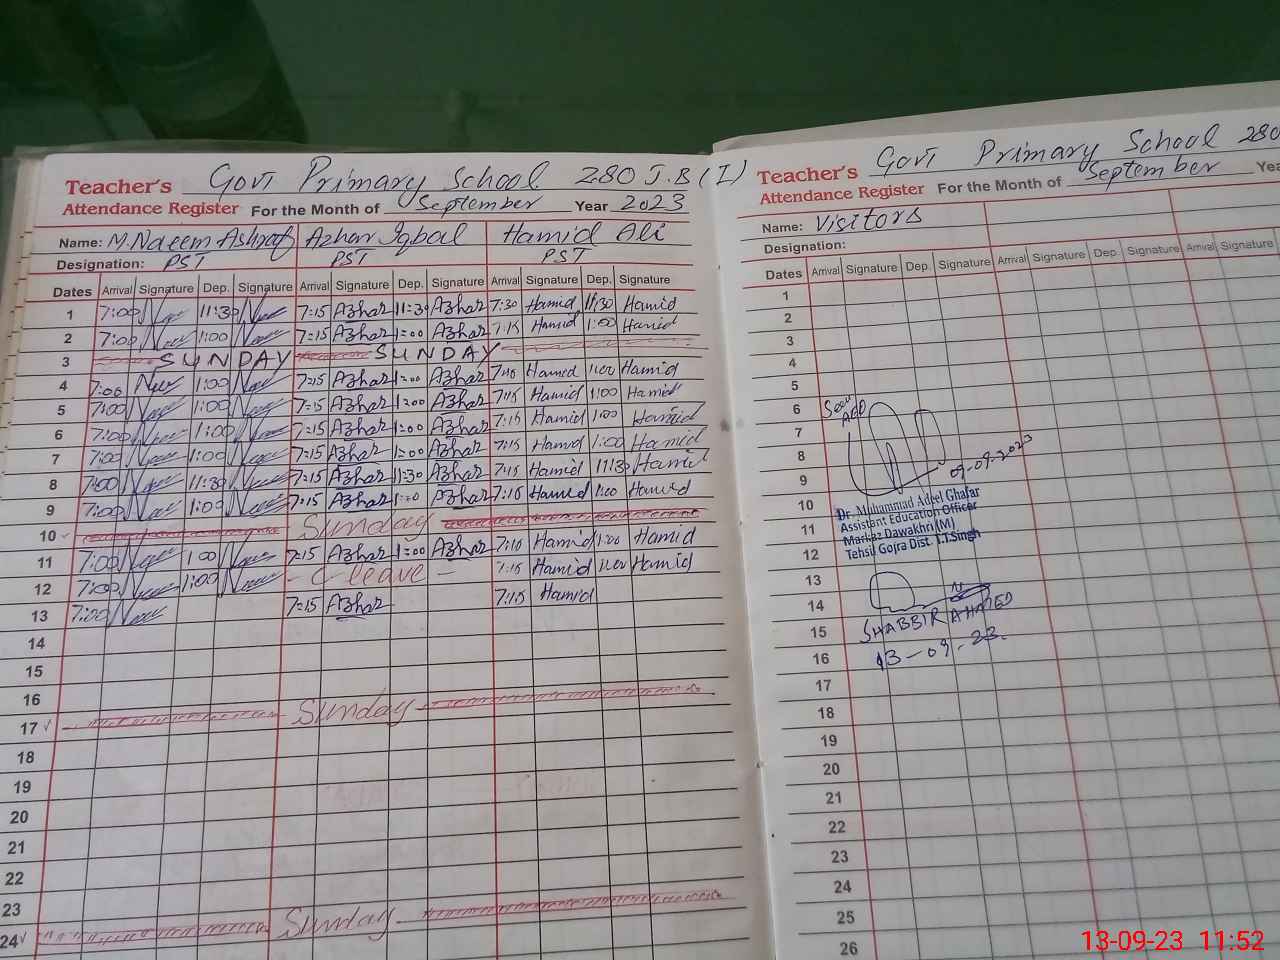 Teacher's Govt Primary School 280 J.B (I)
Attendance Register For the Month of September Year 2023
Name: M. Naeem Ashraf Azhar Iqbal Hamid Ali
Designation: PST PST PST
Dates Arrival Signature Dep. Signature Arrival Signature Dep. Signature Arrival Signature Dep. Signature
1 7:00 11:30 7=15 Azhar 11=30 Azhar 7:30 Hamid 11:30 Hamid
2 7:00 1:00 7=15 Azhar 1=00 Azhar 7:15 Hamid 1:00 Hamid
3 SUNDAY SUNDAY
4 7:00 1:00 7=15 Azhar 1=00 Azhar 7:10 Hamid 1:00 Hamid
5 7:00 1:00 7=15 Azhar 1=00 Azhar 7:15 Hamid 1:00 Hamid
6 7:00 1:00 7=15 Azhar 1=00 Azhar 7:15 Hamid 1:00 Hamid
7 7:00 1:00 7=15 Azhar 1=00 Azhar 7:15 Hamid 1:00 Hamid
8 7:00 11:30 7=15 Azhar 11=30 Azhar 7:15 Hamid 11:30 Hamid
9 7:00 1:00 7=15 Azhar 1=00 Azhar 7:10 Hamid 1:00 Hamid
10 Sunday
11 7:00 1:00 7=15 Azhar 1=00 Azhar 7:10 Hamid 1:00 Hamid
12 7:00 1:00 - C leave - 7:15 Hamid 1:00 Hamid
13 7:00 7=15 Azhar 7:15 Hamid
14
15
16
17 Sunday
18
19
20
21
22
23
24 Sunday
Teacher's Govt Primary School 280
Attendance Register For the Month of September
Name: Visitors
Designation:
Dates Arrival Signature Dep. Signature Arrival Signature Dep. Signature Arrival Signature
1
2
3
4
5
6 Seen
7
8
9 09-09-2023
10 Dr. Muhammad Adeel Ghafar
11 Assistant Education Officer
Markaz Dawakhri (M)
12 Tehsil Gojra Dist. T.T.Singh
13
14
15 SHABBIR AHMED
16 13-09-23.
17
18
19
20
21
22
23
24
25
26
13-09-23 11:52